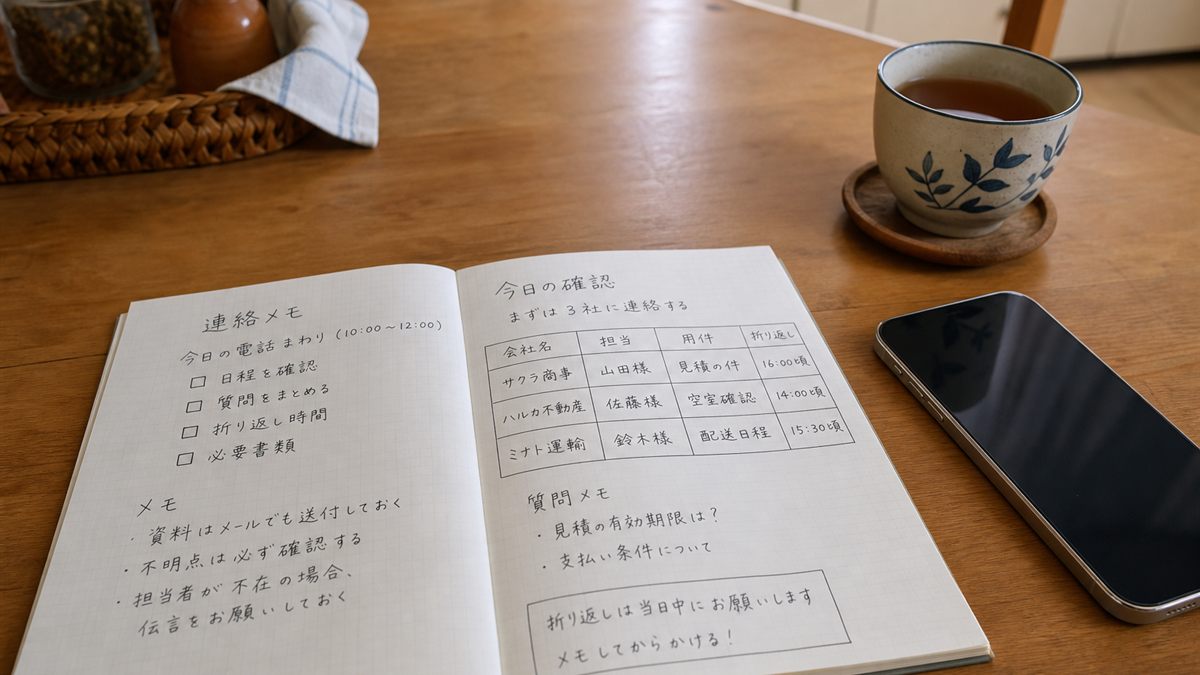 連絡メモ
今日の電話まわり (10:00〜12:00)
□ 日程を確認
□ 質問をまとめる
□ 折り返し時間
□ 必要書類
メモ
・資料はメールでも送付しておく
・不明点は必ず確認する
・担当者が不在の場合、
伝言をお願いしておく
今日の確認
まずは3社に連絡する
会社名 担当 用件 折り返し
サクラ商事 山田様 見積の件 16:00頃
ハルカ不動産 佐藤様 空室確認 14:00頃
ミナト運輸 鈴木様 配送日程 15:30頃
質問メモ
・見積の有効期限は?
・支払い条件について
折り返しは当日中にお願いします
メモしてからかける!